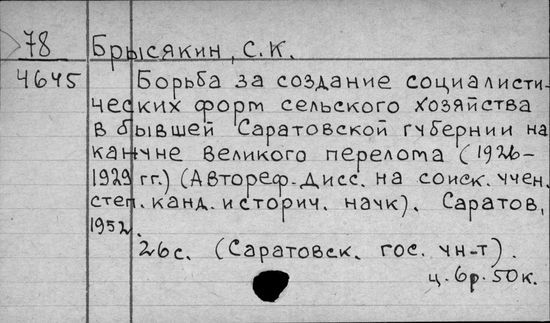 78 Брысякин, С.К.
4645 Борьба за создание социалисти-
ческих форм сельского хозяйства
в бывшей Саратовской губернии на
кануне великого перелома (1926-
1929 гг.) (Автореф. дисс. на соиск. учен.
степ. канд. историч. наук). Саратов,
1952.
26с. (Саратовск. гос. ун-т).
ц. 6р. 50к.